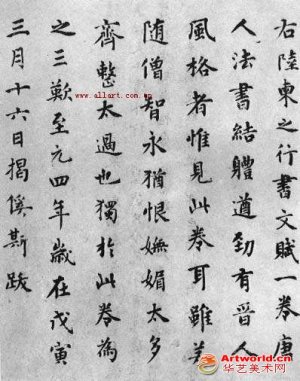 右陸柬之行書文賦一卷唐
人法書結體遒勁有晉人
風格者惟見此卷耳雖若
隋僧智永猶恨嫵媚太多
齊整太過也獨於此卷為
之三歎至元四年歲在戊寅
三月十六日揭傒斯跋
www.allart.com.cn
Artworld.cn
华艺美术网